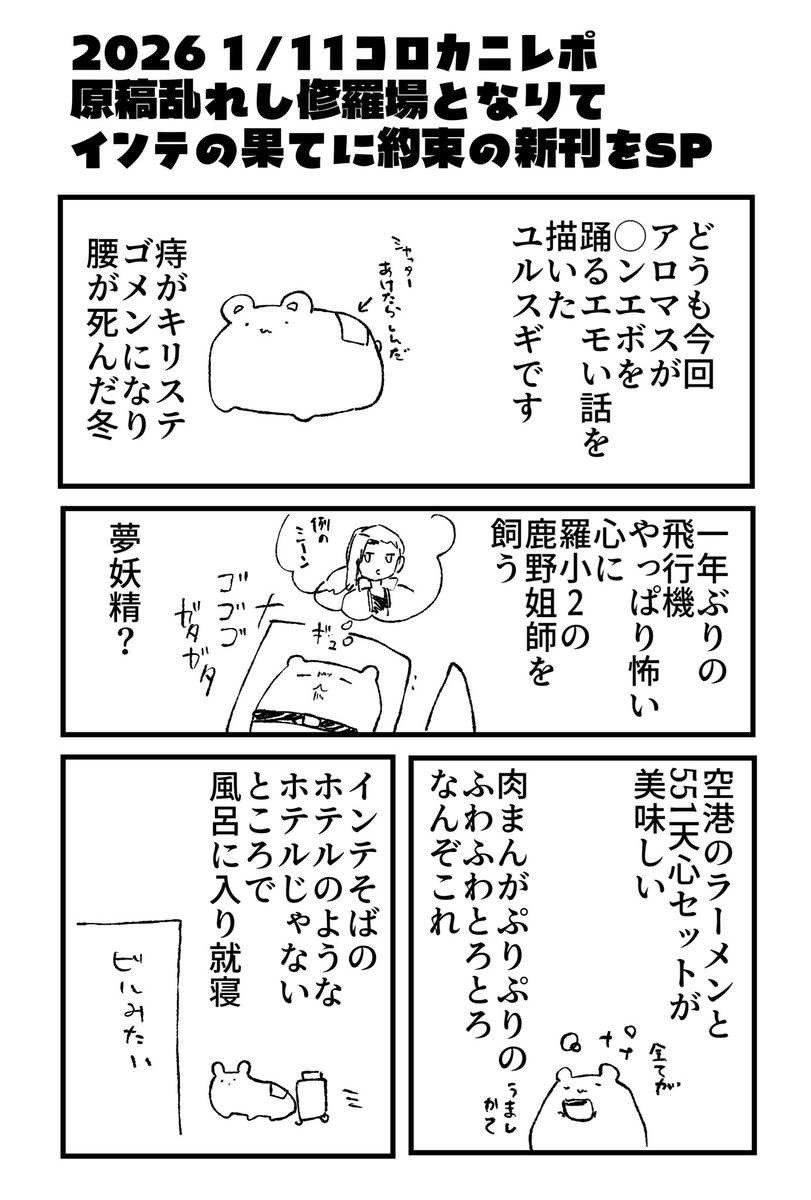 2026 1/11コロカニレポ
原稿乱れし修羅場となりて
インテの果てに約束の新刊をSP
どうも今回
アロマスが
◯ンエボを
踊るエモい話を
描いた
ユルスギです
シャッター
あけたらしんだ
痔がキリステ
ゴメンになり
腰が死んだ冬
一年ぶりの
飛行機
やっぱり怖い
心に
羅小2の
鹿野姐師を
飼う
例の
シーン
ギュ
ゴゴゴゴ
ガタガタ
夢妖精？
空港のラーメンと
551天心セットが
美味しい
肉まんがぷりぷりの
ふわふわとろとろ
なんぞこれ
全てが
うまし
かて
インテそばの
ホテルのような
ホテルじゃない
ところで
風呂に入り就寝
ビルみたい